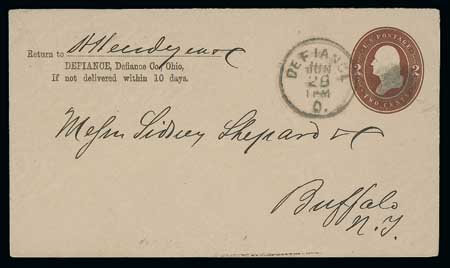 Return to
DEFIANCE, Defiance Co. Ohio,
If not delivered within 10 days.
DEFIANCE
JUN
28
O.
U.S. POSTAGE
2 2
TWO CENTS
Messrs Sidney Shepard & Co
Buffalo
N.Y.